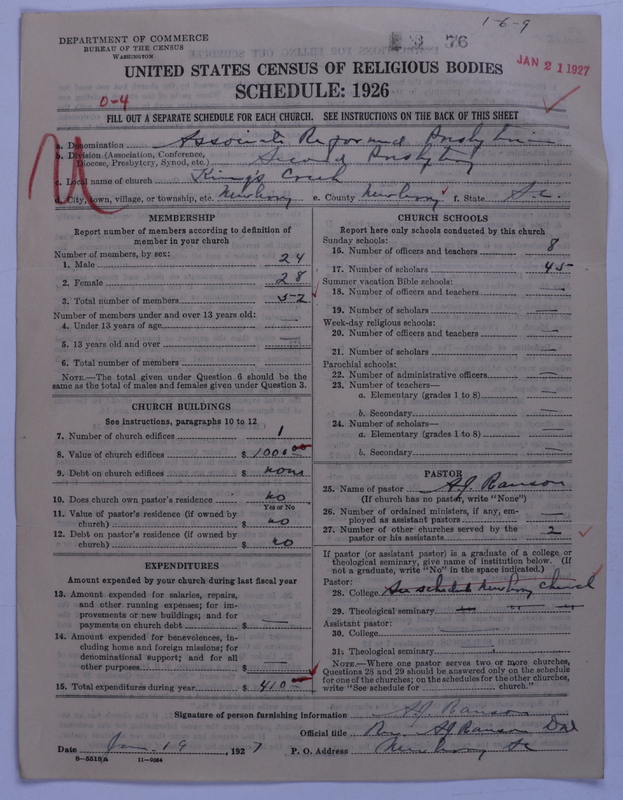 1-6-9
DEPARTMENT OF COMMERCE
BUREAU OF THE CENSUS
WASHINGTON
76
JAN 21 1927
UNITED STATES CENSUS OF RELIGIOUS BODIES
SCHEDULE: 1926
0-4
FILL OUT A SEPARATE SCHEDULE FOR EACH CHURCH. SEE INSTRUCTIONS ON THE BACK OF THIS SHEET
a. Denomination Associate Reformed Presbyterian
b. Division (Association, Conference, Diocese, Presbytery, Synod, etc.) Second Presbytery
c. Local name of church King's Creek
d. City, town, village, or township, etc. Newberry e. County Newberry f. State S.C.
MEMBERSHIP
Report number of members according to definition of
member in your church
Number of members, by sex:
1. Male 24
2. Female 28
3. Total number of members 52
Number of members under and over 13 years old:
4. Under 13 years of age
5. 13 years old and over
6. Total number of members
NOTE.—The total given under Question 6 should be the
same as the total of males and females given under Question 3.
CHURCH BUILDINGS
See instructions, paragraphs 10 to 12
7. Number of church edifices 1
8. Value of church edifices $ 1000.00
9. Debt on church edifices $ none
10. Does church own pastor's residence no
Yes or No
11. Value of pastor's residence (if owned by
church) $ no
12. Debt on pastor's residence (if owned by
church) $ no
EXPENDITURES
Amount expended by your church during last fiscal year
13. Amount expended for salaries, repairs,
and other running expenses; for im-
provements or new buildings; and for
payments on church debt $ —
14. Amount expended for benevolences, in-
cluding home and foreign missions; for
denominational support; and for all
other purposes $ —
15. Total expenditures during year $ 410
CHURCH SCHOOLS
Report here only schools conducted by this church
Sunday schools:
16. Number of officers and teachers 8
17. Number of scholars 45
Summer vacation Bible schools:
18. Number of officers and teachers
19. Number of scholars —
Week-day religious schools:
20. Number of officers and teachers —
21. Number of scholars —
Parochial schools:
22. Number of administrative officers —
23. Number of teachers—
a. Elementary (grades 1 to 8) —
b. Secondary —
24. Number of scholars—
a. Elementary (grades 1 to 8) —
b. Secondary —
PASTOR
25. Name of pastor A.J. Ranson
(If church has no pastor, write "None")
26. Number of ordained ministers, if any, em-
ployed as assistant pastors —
27. Number of other churches served by the
pastor or his assistants 2
If pastor (or assistant pastor) is a graduate of a college or
theological seminary, give name of institution below. (If
not a graduate, write "No" in the space indicated.)
Pastor:
28. College See schedule Newberry church
29. Theological seminary " " "
Assistant pastor:
30. College
31. Theological seminary
NOTE.—Where one pastor serves two or more churches,
Questions 28 and 29 should be answered only on the schedule
for one of the churches; on the schedules for the other churches,
write "See schedule for church."
Signature of person furnishing information A.J. Ranson
Official title Rev. A.J. Ranson
Date Jan. 19, 1927 P. O. Address Newberry SC
8-5518A 11-9064